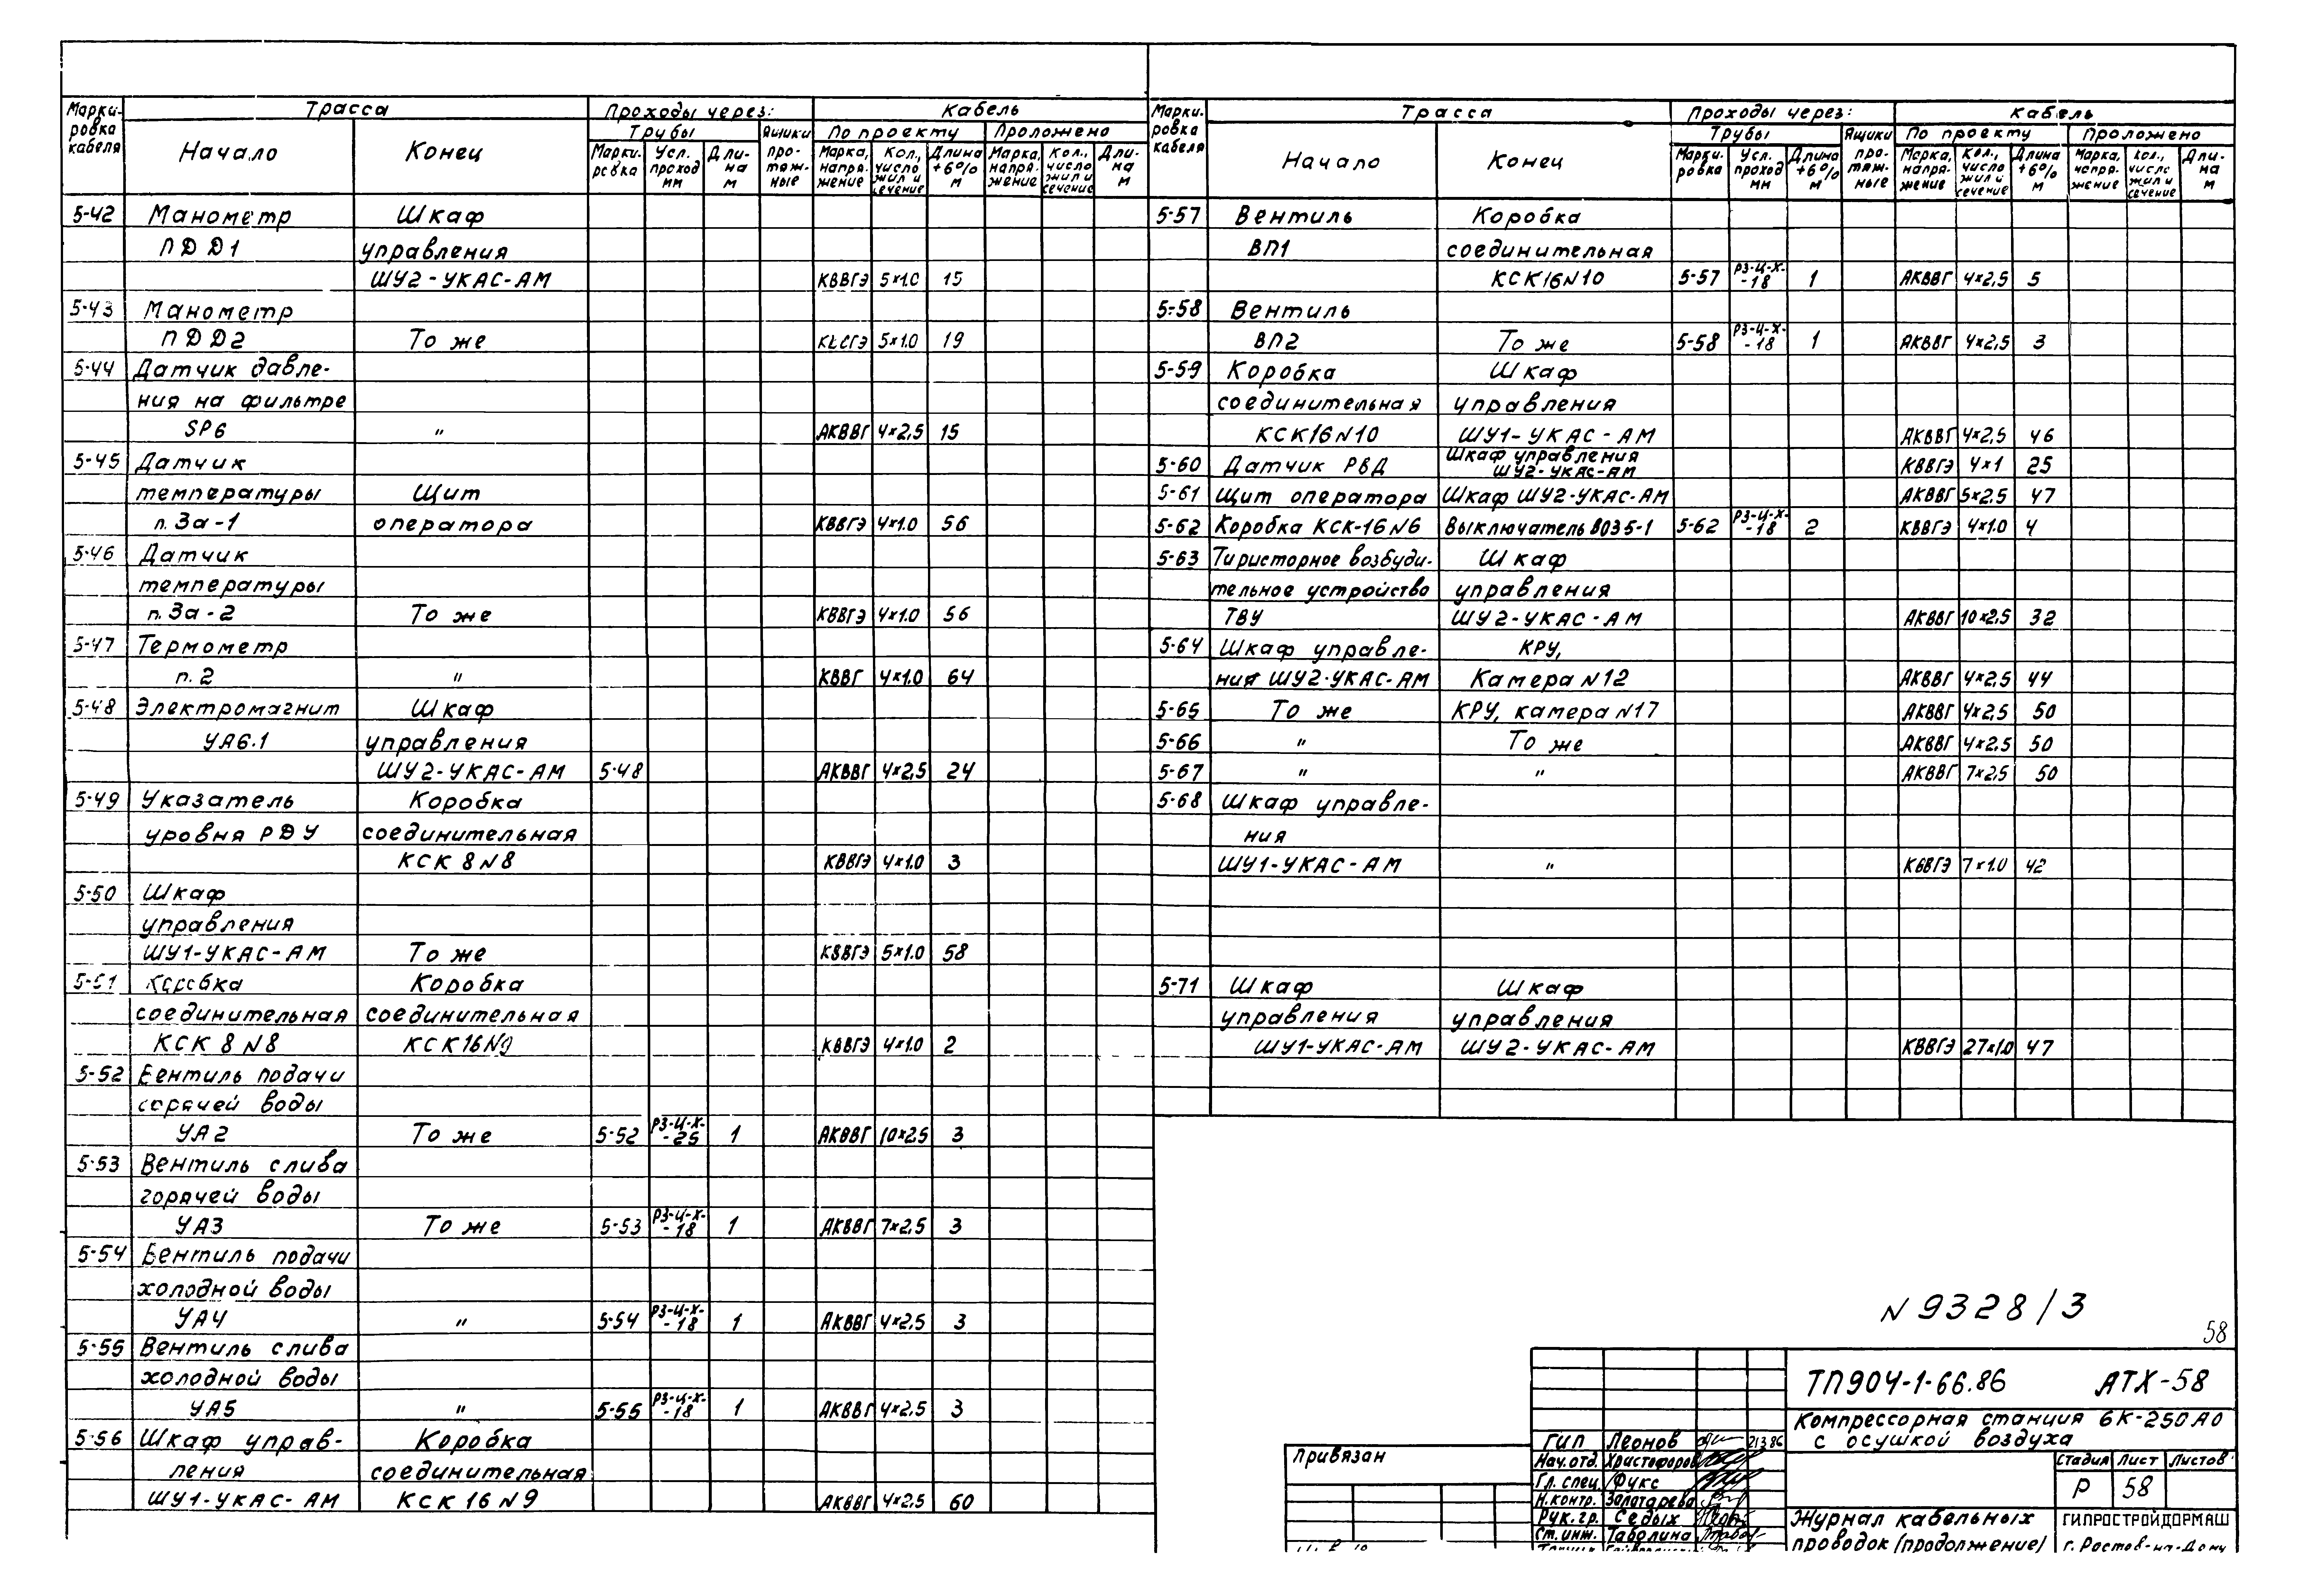 Марки-ровка кабеля | Трасса | Проходы через: | Кабель
Начало | Конец | Трубы | Ящики про-тяж-ные | По проекту | Проложено
Марки-ровка | Усл. проход мм | Дли-на м | Марка, напря-жение | Кол., число жил и сечение | Длина +6% м | Марка, напря-жение | Кол., число жил и сечение | Дли-на м
5-42 Манометр Шкаф
ПДД1 управления
ШУ2-УКАС-АМ КВВГЭ 5×1.0 15
5-43 Манометр
ПДД2 То же 5×1.0 19
5-44 Датчик давле-
ния на фильтре
SP6 " АКВВГ 4×2,5 15
5-45 Датчик
температуры Щит
п. 3а-1 оператора КВВГЭ 4×1.0 56
5-46 Датчик
температуры
п. 3а-2 То же КВВГЭ 4×1.0 56
5-47 Термометр
п. 2 " КВВГ 4×1.0 64
5-48 Электромагнит Шкаф
УА6.1 управления
ШУ2-УКАС-АМ 5-48 АКВВГ 4×2,5 24
5-49 Указатель Коробка
уровня РДУ соединительная
КСК 8 N8 КВВГЭ 4×1.0 3
5-50 Шкаф
управления
ШУ1-УКАС-АМ То же КВВГЭ 5×1.0 58
5-51 Коробка Коробка
соединительная соединительная
КСК 8 N8 КСК16 N9 КВВГЭ 4×1.0 2
5-52 Вентиль подачи
горячей воды
УА2 То же 5-52 РЗ-Ц-Х--25 1 АКВВГ 10×2.5 3
5-53 Вентиль слива
горячей воды
УА3 То же 5-53 РЗ-Ц-Х--18 1 АКВВГ 7×2,5 3
5-54 Вентиль подачи
холодной воды
УА4 " 5-54 РЗ-Ц-Х--18 1 АКВВГ 4×2,5 3
5-55 Вентиль слива
холодной воды
УА5 " 5-55 РЗ-Ц-Х--18 1 АКВВГ 4×2,5 3
5-56 Шкаф управ- Коробка
ления соединительная
ШУ1-УКАС-АМ КСК 16 N9 АКВВГ 4×2,5 60
Марки-ровка кабеля | Трасса | Проходы через: | Кабель
Начало | Конец | Трубы | Ящики про-тяж-ные | По проекту | Проложено
Марки-ровка | Усл. проход мм | Длина +6% м | Марка, напря-жение | Кол., число жил и сечение | Длина +6% м | Марка, напря-жение | Кол., число жил и сечение | Дли-на м
5-57 Вентиль Коробка
ВП1 соединительная
КСК16 N10 5-57 РЗ-Ц-Х--18 1 АКВВГ 4×2,5 5
5-58 Вентиль
ВП2 То же 5-58 РЗ-Ц-Х--18 1 АКВВГ 4×2,5 3
5-59 Коробка Шкаф
соединительная управления
КСК16 N10 ШУ1-УКАС-АМ АКВВГ 4×2,5 46
5-60 Датчик РВД Шкаф управления ШУ2-УКАС-АМ КВВГЭ 4×1 25
5-61 Щит оператора Шкаф ШУ2-УКАС-АМ АКВВГ 5×2,5 47
5-62 Коробка КСК-16 N6 Выключатель ВОЗ5-1 5-62 РЗ-Ц-Х--18 2 КВВГЭ 4×1.0 4
5-63 Тиристорное возбуди- Шкаф
тельное устройство управления
ТВУ ШУ2-УКАС-АМ АКВВГ 10×2,5 32
5-64 Шкаф управле- КРУ,
ния ШУ2-УКАС-АМ Камера N12 АКВВГ 4×2,5 44
5-65 То же КРУ, камера N17 АКВВГ 4×2,5 50
5-66 " То же АКВВГ 4×2,5 50
5-67 " " АКВВГ 7×2,5 50
5-68 Шкаф управле-
ния
ШУ1-УКАС-АМ " КВВГЭ 7×1.0 42
5-71 Шкаф Шкаф
управления управления
ШУ1-УКАС-АМ ШУ2-УКАС-АМ КВВГЭ 27×1.0 47
N 9328/3
58
ТП904-1-66.86 АТХ-58
Компрессорная станция 6К-250А0
с осушкой воздуха
Привязан
ГИП Леонов 21.3.86
Нач.отд. Христофоров
Гл. спец. Фукс
Н.контр. Золотарева
Рук.гр. Седых
Ст.инж. Таболина
Стадия Лист Листов
Р 58
Журнал кабельных
проводок (продолжение)
ГИПРОСТРОЙДОРМАШ
г. Ростов-на-Дону